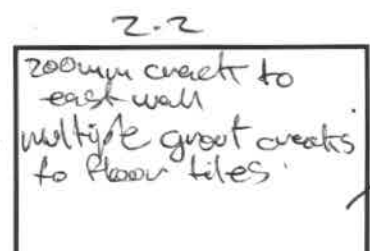 2.2
200mm crack to
east wall
multiple grout cracks
to floor tiles.